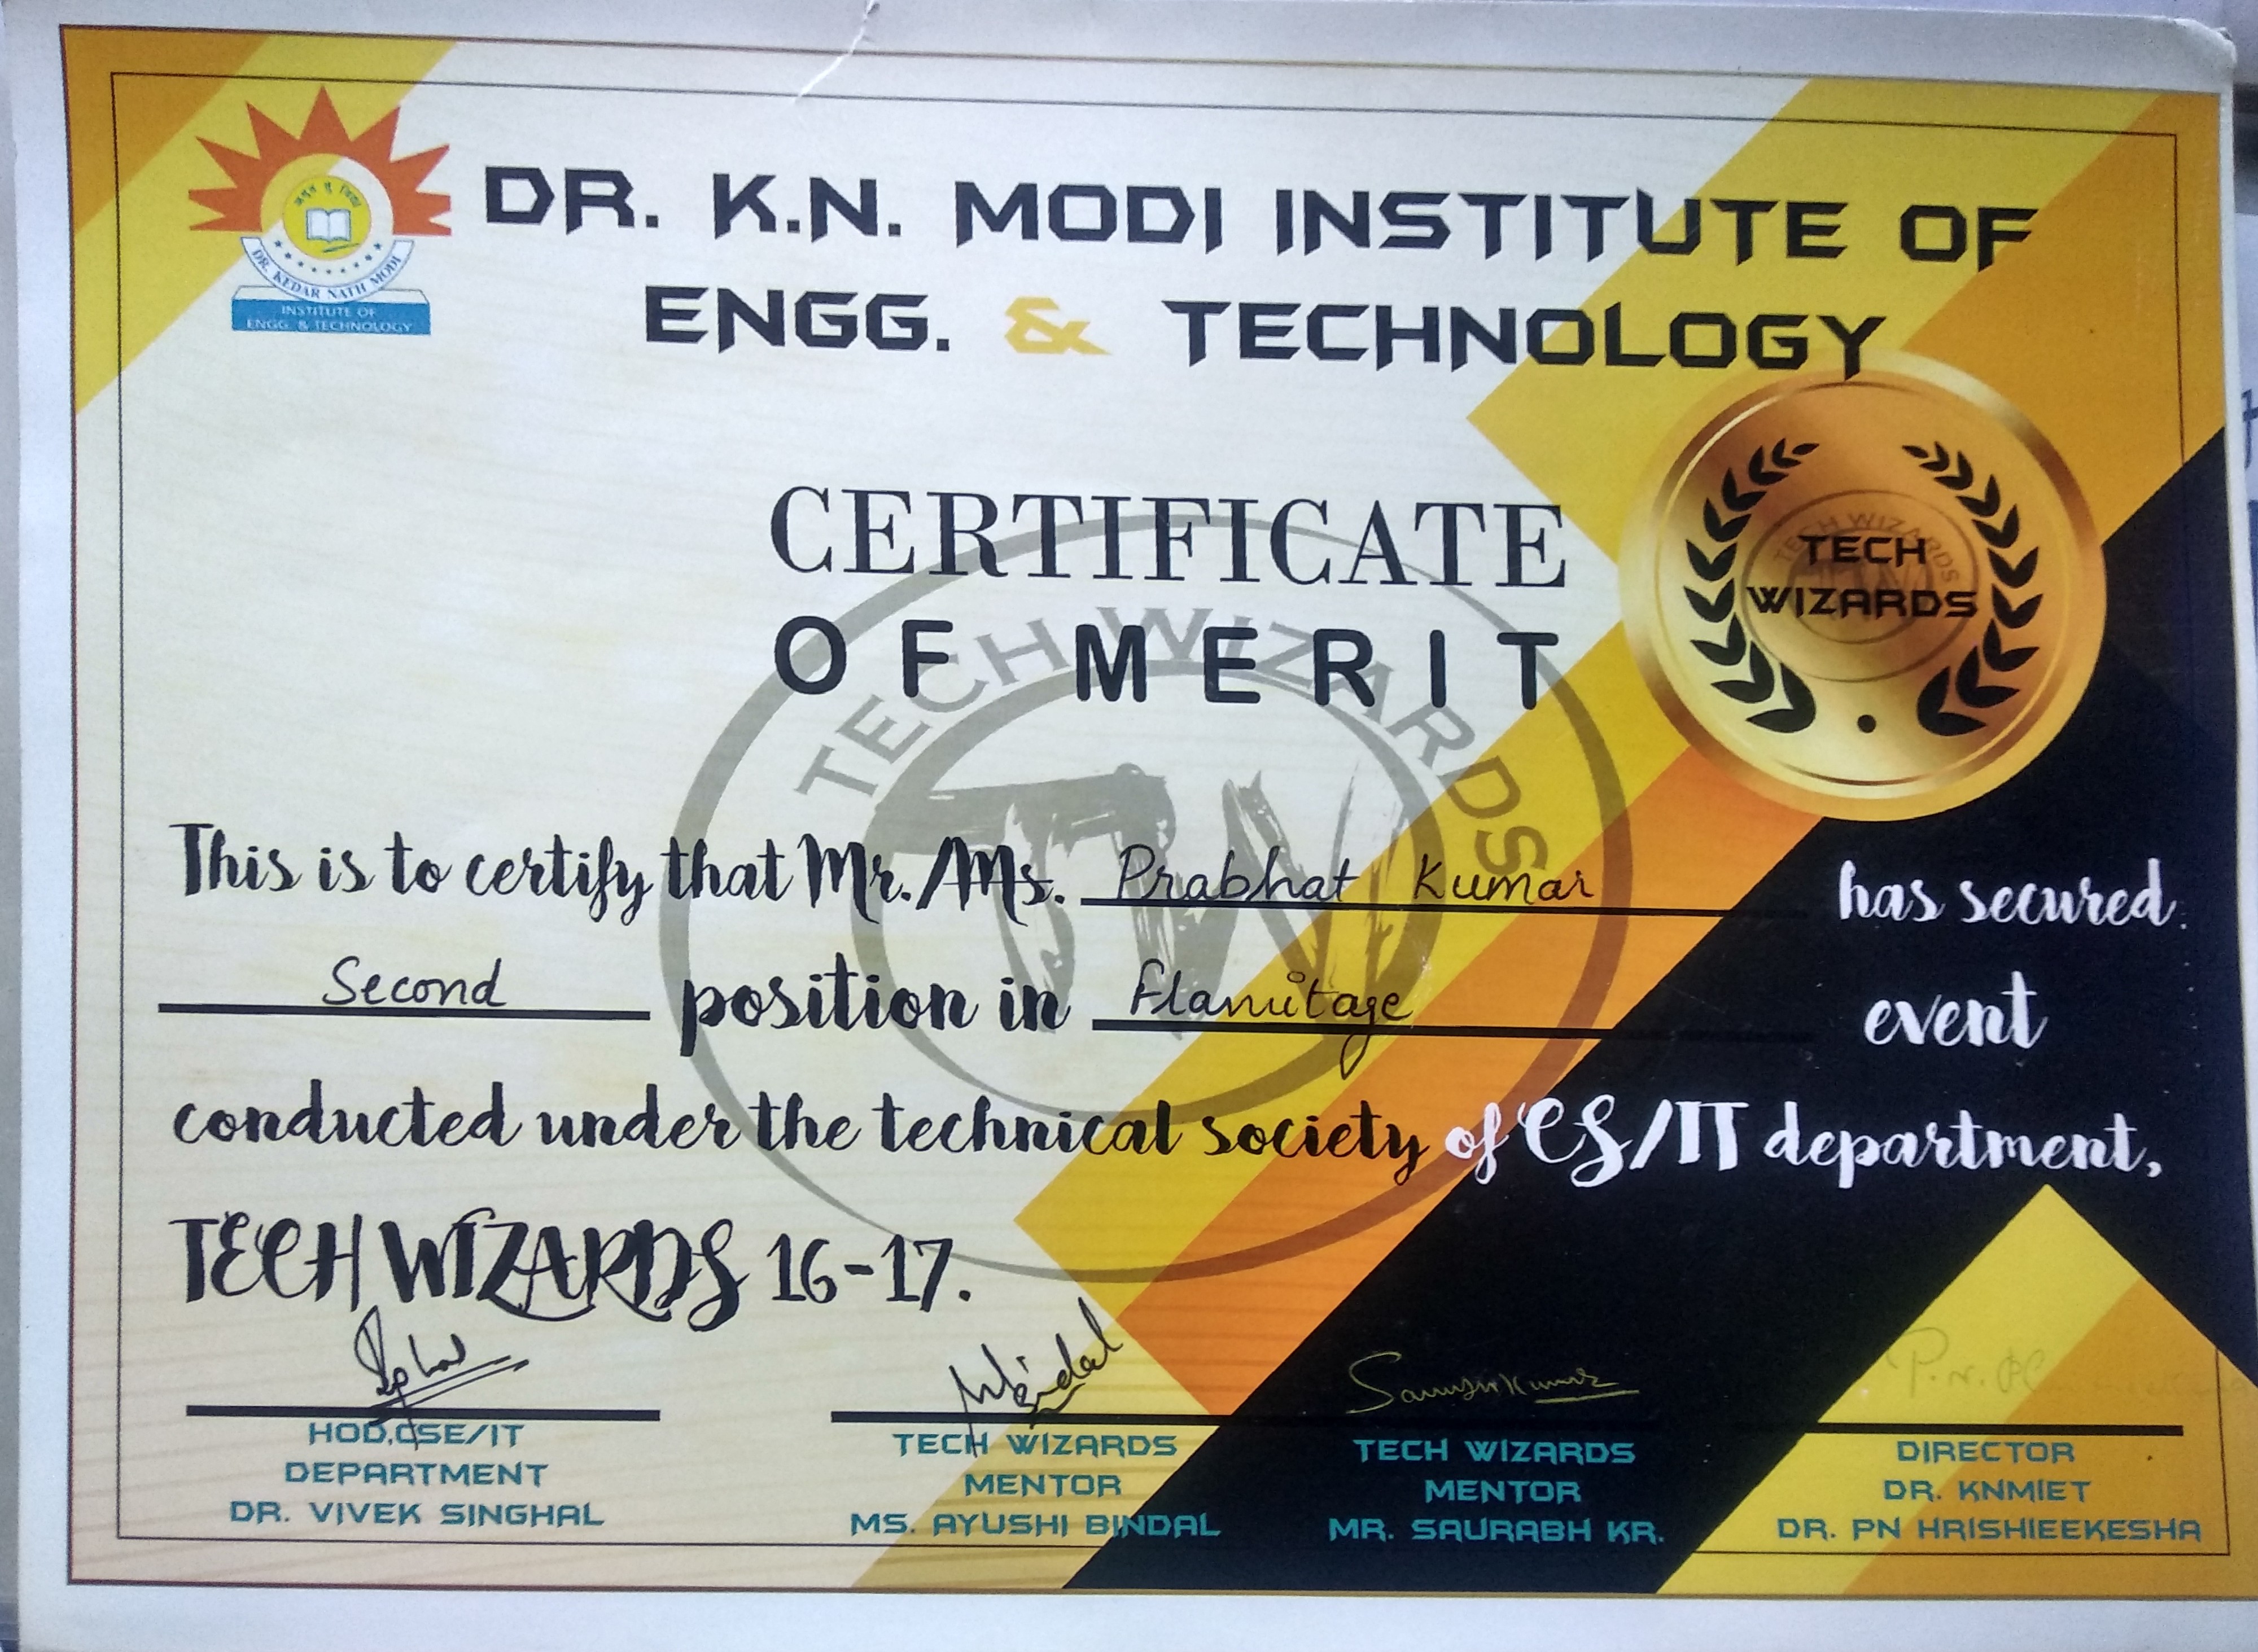 DR. K.N. MODI INSTITUTE OF
ENGG. & TECHNOLOGY
DR. KEDAR NATH MODI
INSTITUTE OF
ENGG. & TECHNOLOGY
CERTIFICATE
OF MERIT
TECH WIZARDS
TECH
WIZARDS
TECH WIZARDS
TW
This is to certify that Mr./Ms. Prabhat Kumar has secured
Second position in event
conducted under the technical society of CS/IT department,
TECH WIZARDS 16-17.
HOD,CSE/IT
DEPARTMENT
DR. VIVEK SINGHAL
TECH WIZARDS
MENTOR
MS. AYUSHI BINDAL
TECH WIZARDS
MENTOR
MR. SAURABH KR.
DIRECTOR
DR. KNMIET
DR. PN HRISHIEEKESHA